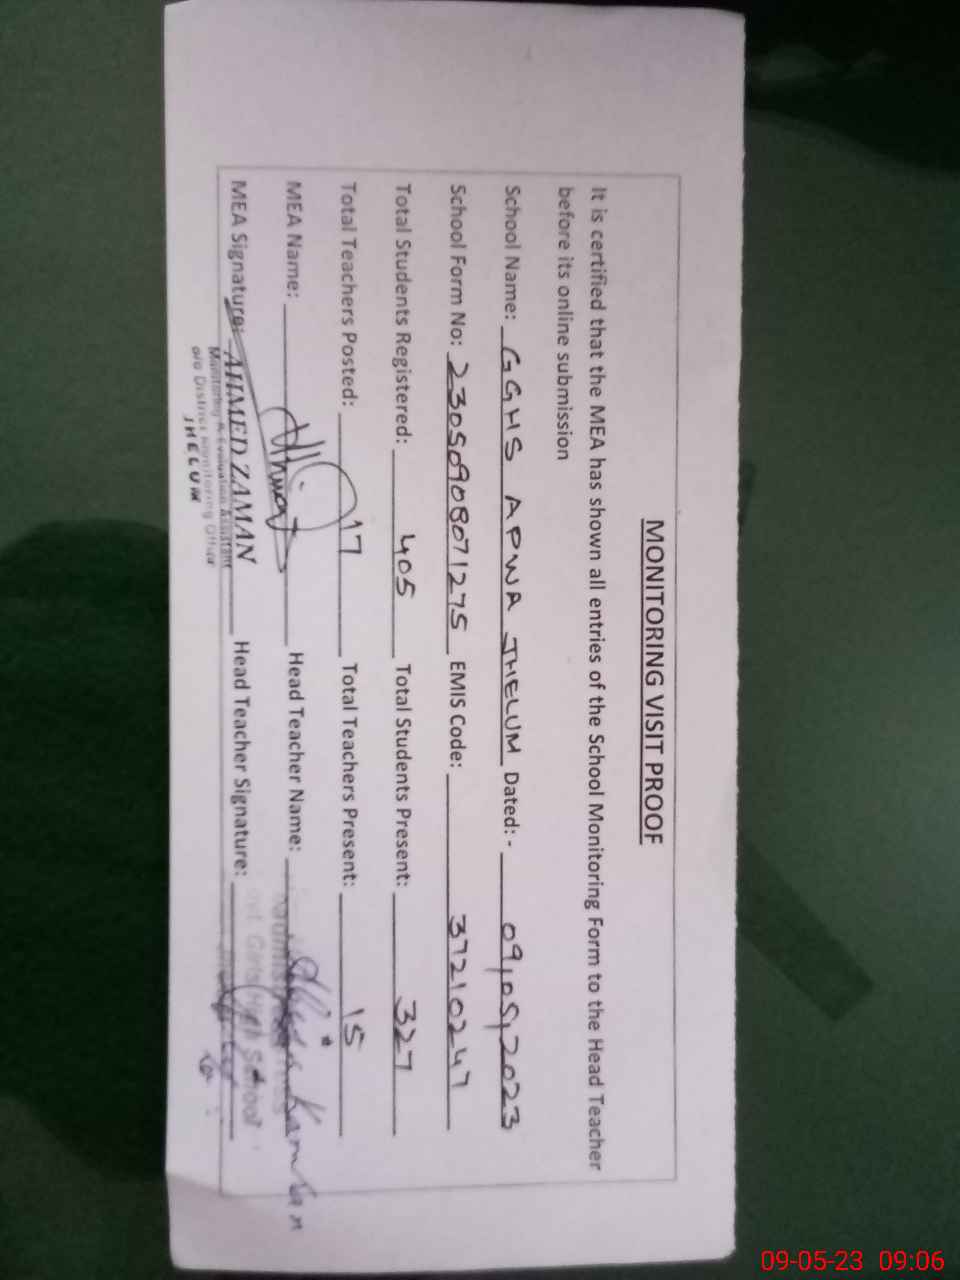 MONITORING VISIT PROOF
It is certified that the MEA has shown all entries of the School Monitoring Form to the Head Teacher
before its online submission
School Name: GGHS APWA JHELUM Dated:- 09,05,2023
School Form No: 23050908071275 EMIS Code: 37210247
Total Students Registered: 405 Total Students Present: 327
Total Teachers Posted: 17 Total Teachers Present: 15
MEA Name: Head Teacher Name: Kamran
MEA Signature: AHMED ZAMAN Head Teacher Signature:
Monitoring & Evaluation Assistant
o/o District Monitoring Officer
JHELUM
Girls High School
09-05-23 09:06